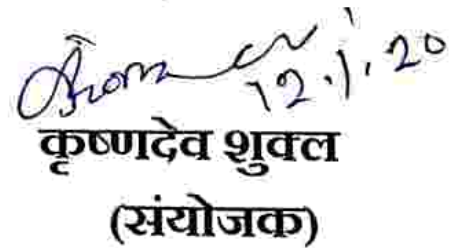 12.1.20
कृष्णदेव शुक्ल
(संयोजक)